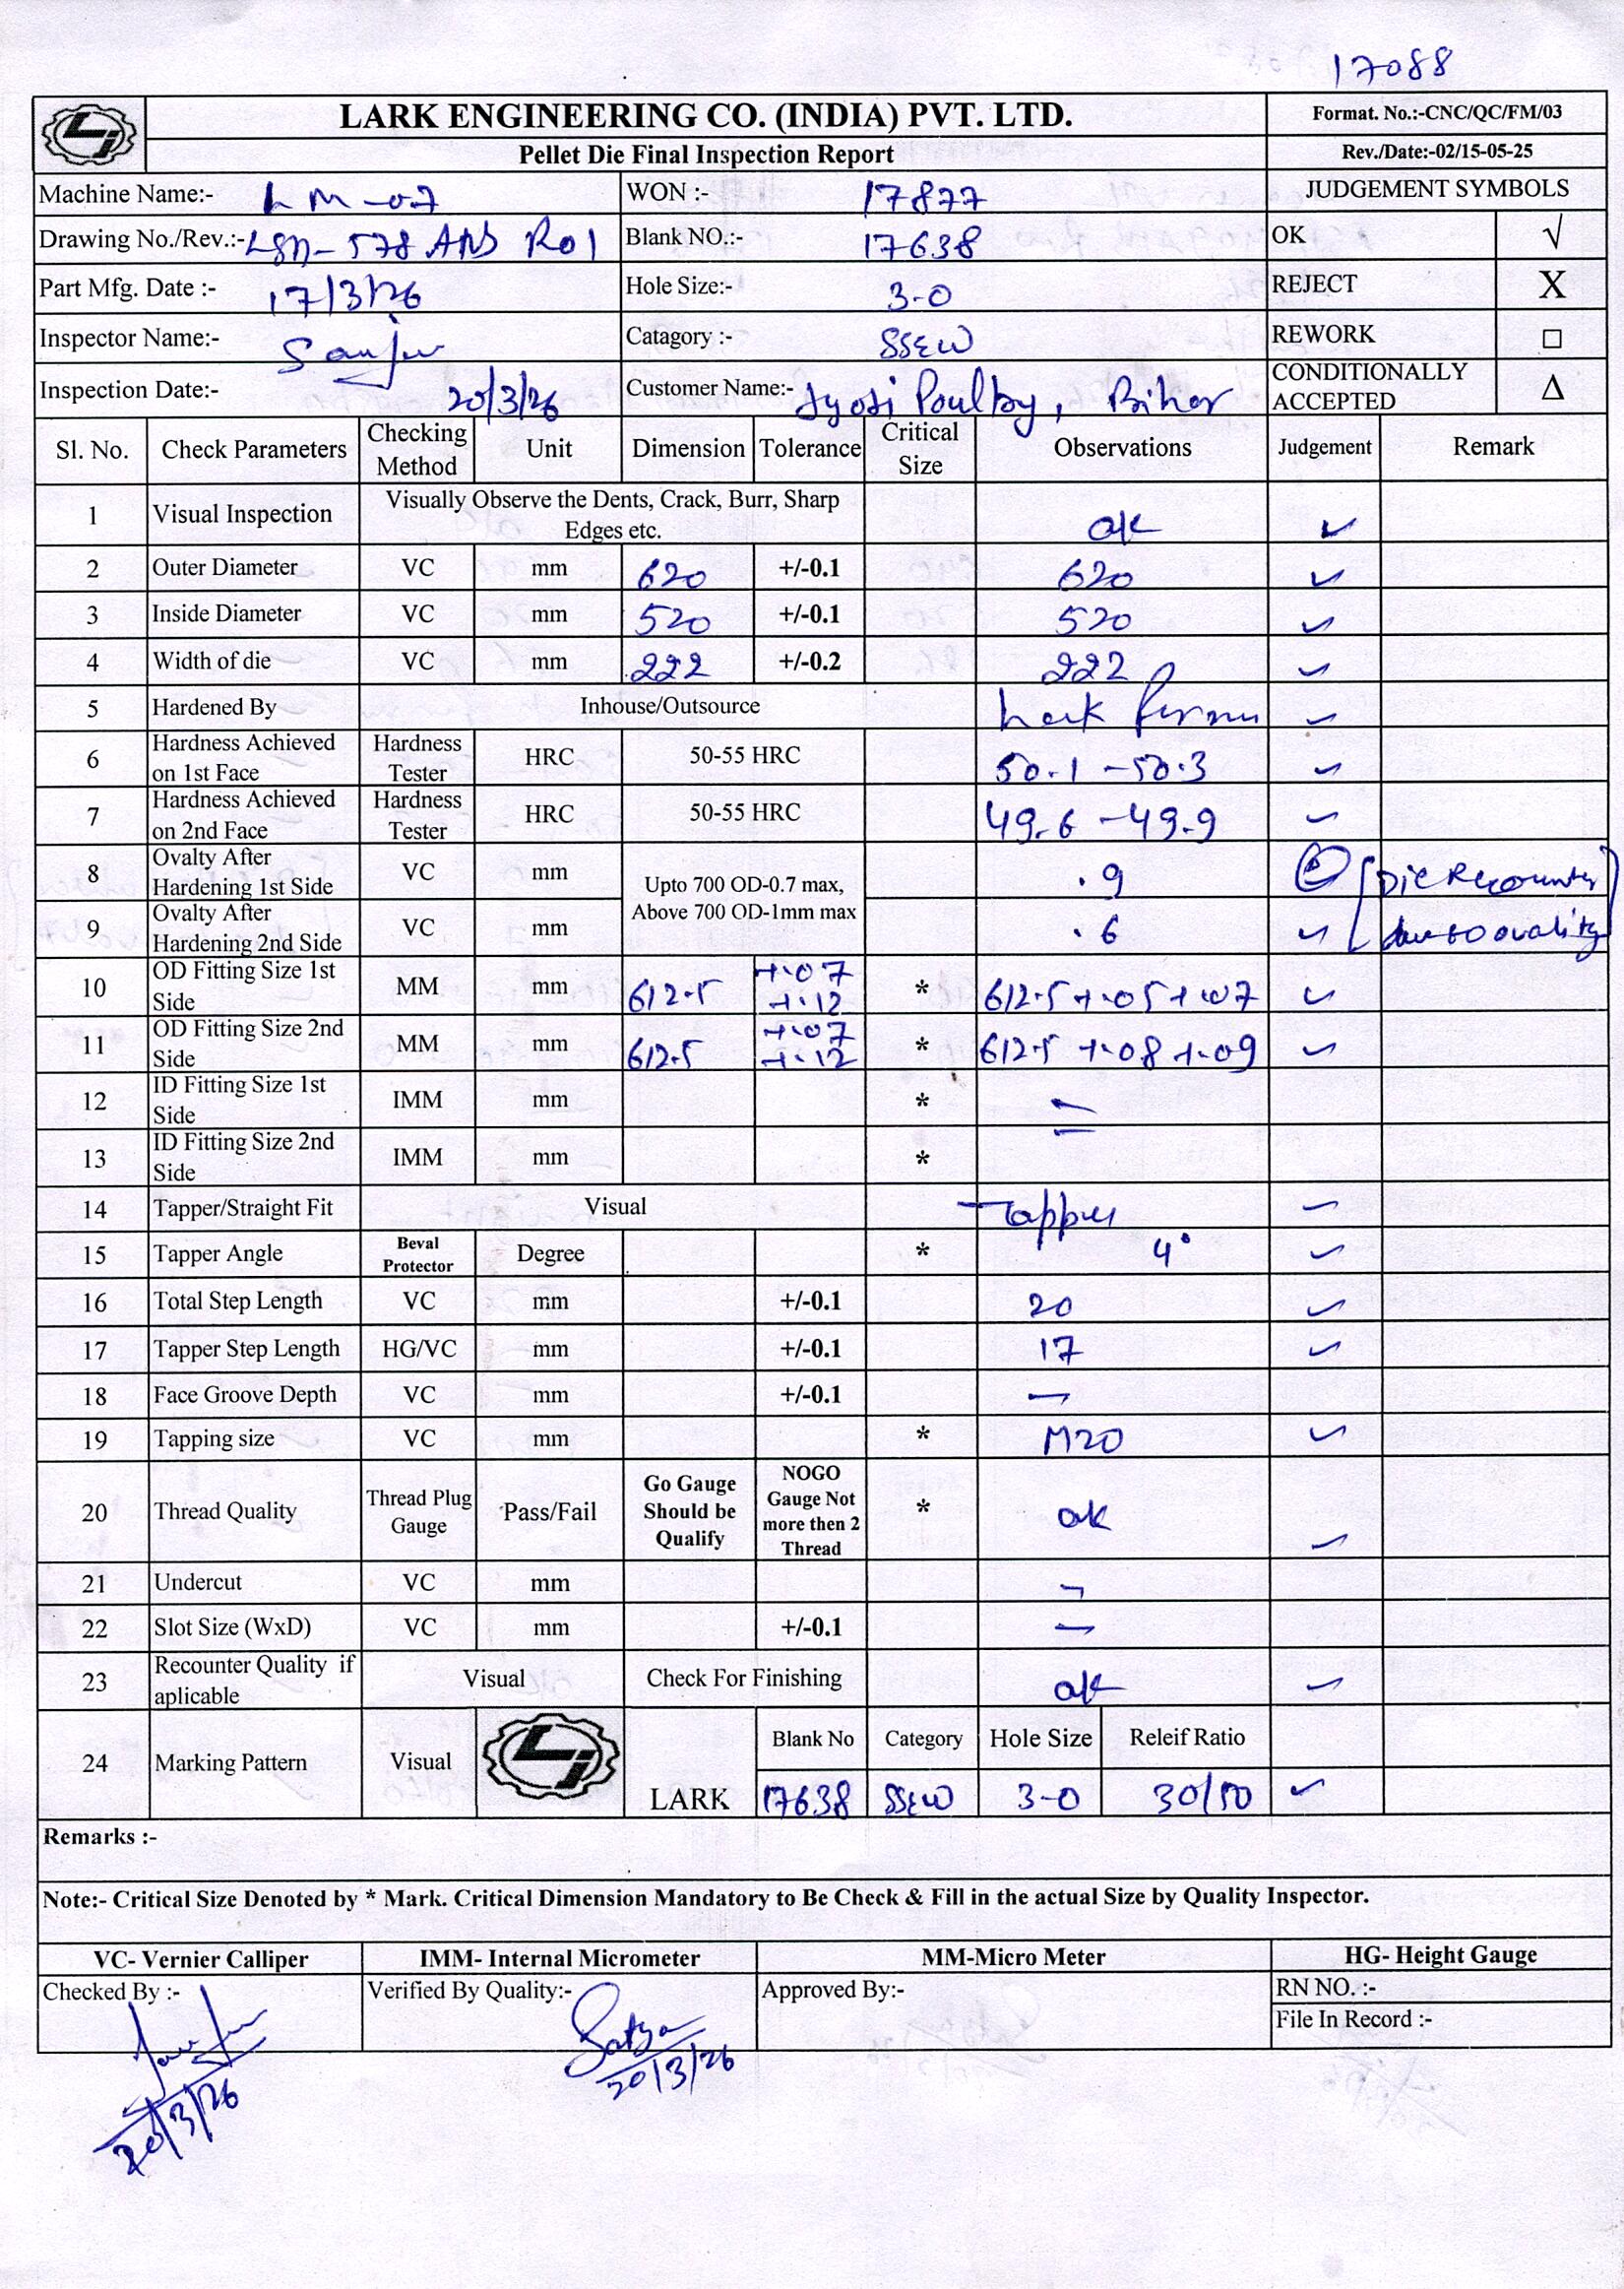 17088
LARK ENGINEERING CO. (INDIA) PVT. LTD.
Format. No.:-CNC/QC/FM/03
Pellet Die Final Inspection Report
Rev./Date:-02/15-05-25
Machine Name:- LM-07 WON :- 17877 JUDGEMENT SYMBOLS
Drawing No./Rev.:- R01 Blank NO.:- 17638 OK √
Part Mfg. Date :- 17/3/26 Hole Size:- 3-0 REJECT X
Inspector Name:- Sanju Catagory :- SSEW REWORK □
Inspection Date:- 20/3/26 Customer Name:- Jyoti Poultry, Bihar CONDITIONALLY ACCEPTED Δ
Sl. No. Check Parameters Checking Method Unit Dimension Tolerance Critical Size Observations Judgement Remark
1 Visual Inspection Visually Observe the Dents, Crack, Burr, Sharp Edges etc. ok ✓
2 Outer Diameter VC mm 620 +/-0.1 620 ✓
3 Inside Diameter VC mm 520 +/-0.1 520 ✓
4 Width of die VC mm 222 +/-0.2 222 ✓
5 Hardened By Inhouse/Outsource ✓
6 Hardness Achieved on 1st Face Hardness Tester HRC 50-55 HRC 50.1 - 50.3 ✓
7 Hardness Achieved on 2nd Face Hardness Tester HRC 50-55 HRC 49.6 - 49.9 ✓
8 Ovalty After Hardening 1st Side VC mm Upto 700 OD-0.7 max, Above 700 OD-1mm max .9 Die Recounter
9 Ovalty After Hardening 2nd Side VC mm .6 ✓ due to ovality
10 OD Fitting Size 1st Side MM mm 612.5 +.07 +.12 * 612.5 +.05 +.07 ✓
11 OD Fitting Size 2nd Side MM mm 612.5 +.07 +.12 * 612.5 +.08 +.09 ✓
12 ID Fitting Size 1st Side IMM mm * —
13 ID Fitting Size 2nd Side IMM mm * —
14 Tapper/Straight Fit Visual Tapper ✓
15 Tapper Angle Beval Protector Degree * 4° ✓
16 Total Step Length VC mm +/-0.1 20 ✓
17 Tapper Step Length HG/VC mm +/-0.1 17 ✓
18 Face Groove Depth VC mm +/-0.1 —
19 Tapping size VC mm * M20 ✓
20 Thread Quality Thread Plug Gauge Pass/Fail Go Gauge Should be Qualify NOGO Gauge Not more then 2 Thread * ok ✓
21 Undercut VC mm —
22 Slot Size (WxD) VC mm +/-0.1 —
23 Recounter Quality if aplicable Visual Check For Finishing ok ✓
24 Marking Pattern Visual LARK Blank No Category Hole Size Releif Ratio
17638 SSEW 3-0 30/50 ✓
Remarks :-
Note:- Critical Size Denoted by * Mark. Critical Dimension Mandatory to Be Check & Fill in the actual Size by Quality Inspector.
VC- Vernier Calliper IMM- Internal Micrometer MM-Micro Meter HG- Height Gauge
Checked By :- Verified By Quality:- Approved By:- RN NO. :-
File In Record :-
Sanju Satya
20/3/26 20/3/26